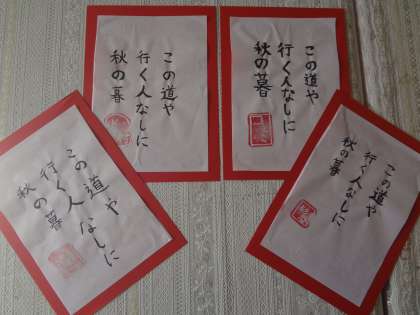 この道や
行く人なしに
秋の暮
この道や
行く人なしに
秋の暮
この道や
行く人なしに
秋の暮
この道や
行く人なしに
秋の暮